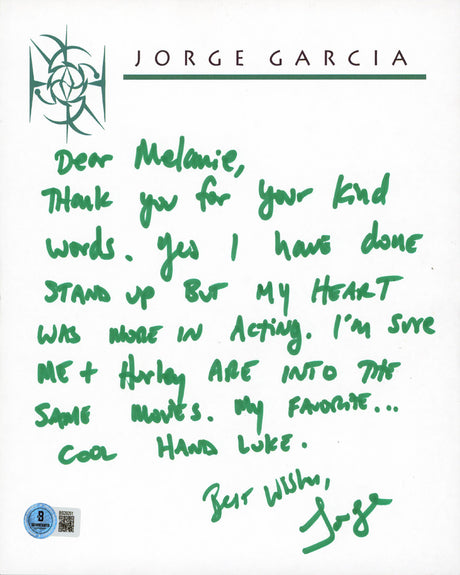 JORGE GARCIA
Dear Melanie,
Thank you for your kind
words. Yes I have done
STAND UP BUT MY HEART
WAS MORE IN ACTING. I'm sure
ME + Hurley ARE INTO THE
SAME MOVIES. My FAVORITE...
COOL HAND LUKE.
Best Wishes,
Jorge